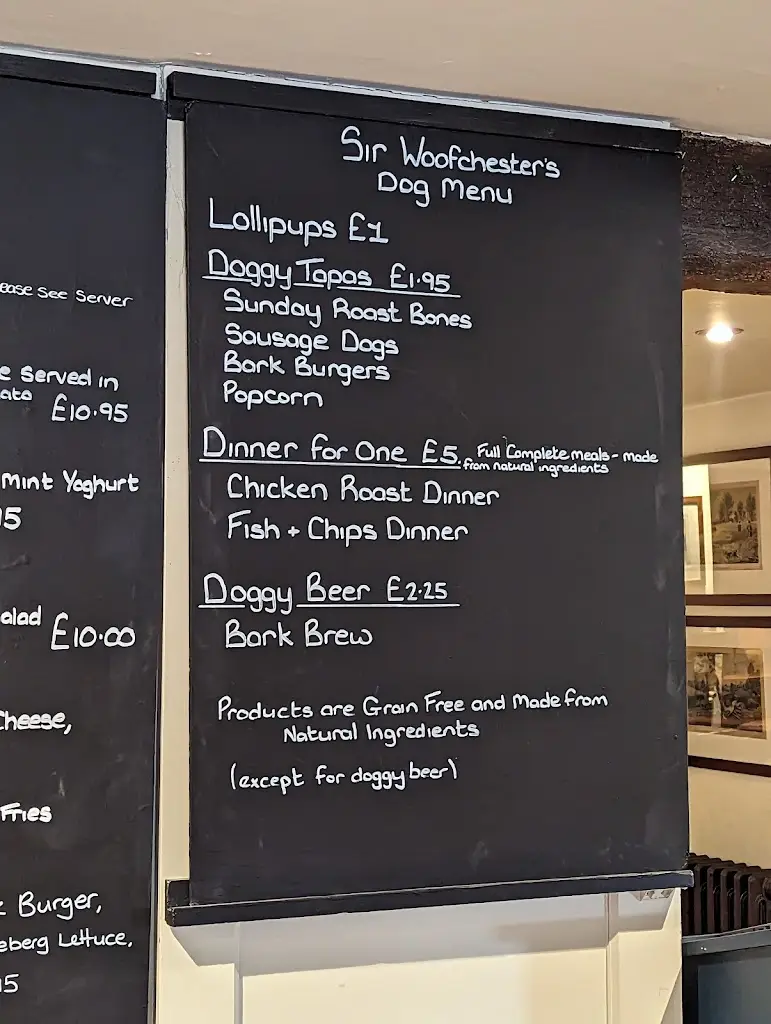 Sir Woofchester's
Dog Menu
Lollipups £1
Doggy Tapas £1.95
Sunday Roast Bones
Sausage Dogs
Bark Burgers
Popcorn
Dinner for One £5. Full Complete meals - made
from natural ingredients
Chicken Roast Dinner
Fish + Chips Dinner
Doggy Beer £2.25
Bark Brew
Products are Grain Free and Made from
Natural Ingredients
(except for doggy beer)
see Server
served in
£10.95
mint Yoghurt
£10.00
Cheese,
Fries
Burger,
Lettuce,